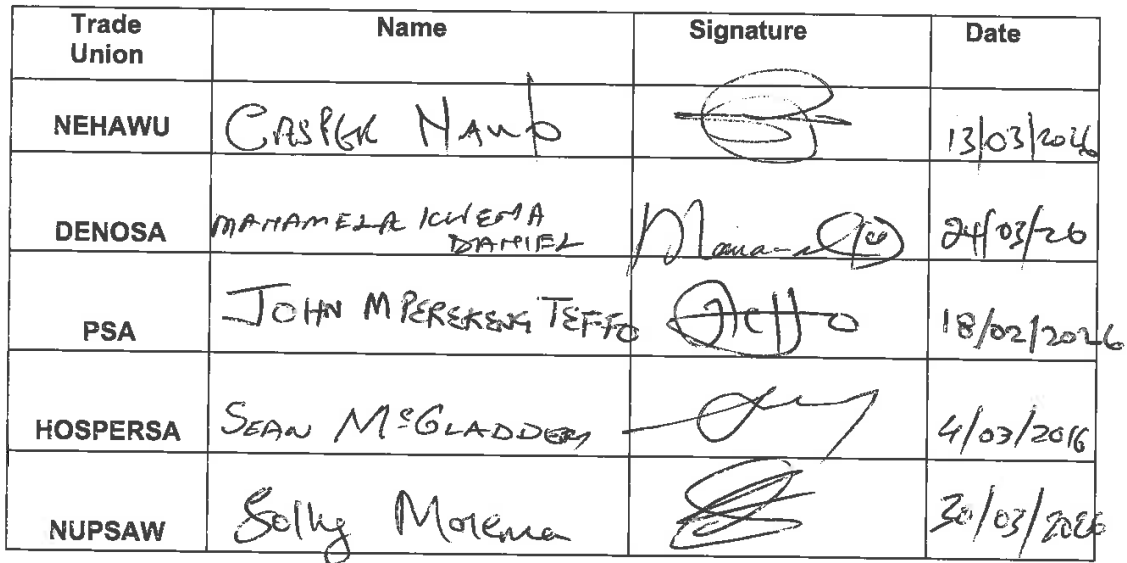 Trade Union Name Signature Date
NEHAWU CASPER 13/03/2026
DENOSA MANAMELA KWENA DANIEL 24/03/26
PSA JOHN MPEREKENG TEFFO Teffo 18/02/2026
HOSPERSA SEAN McGLADDERY 4/03/2016
NUPSAW Solly Morema 30/03/2026